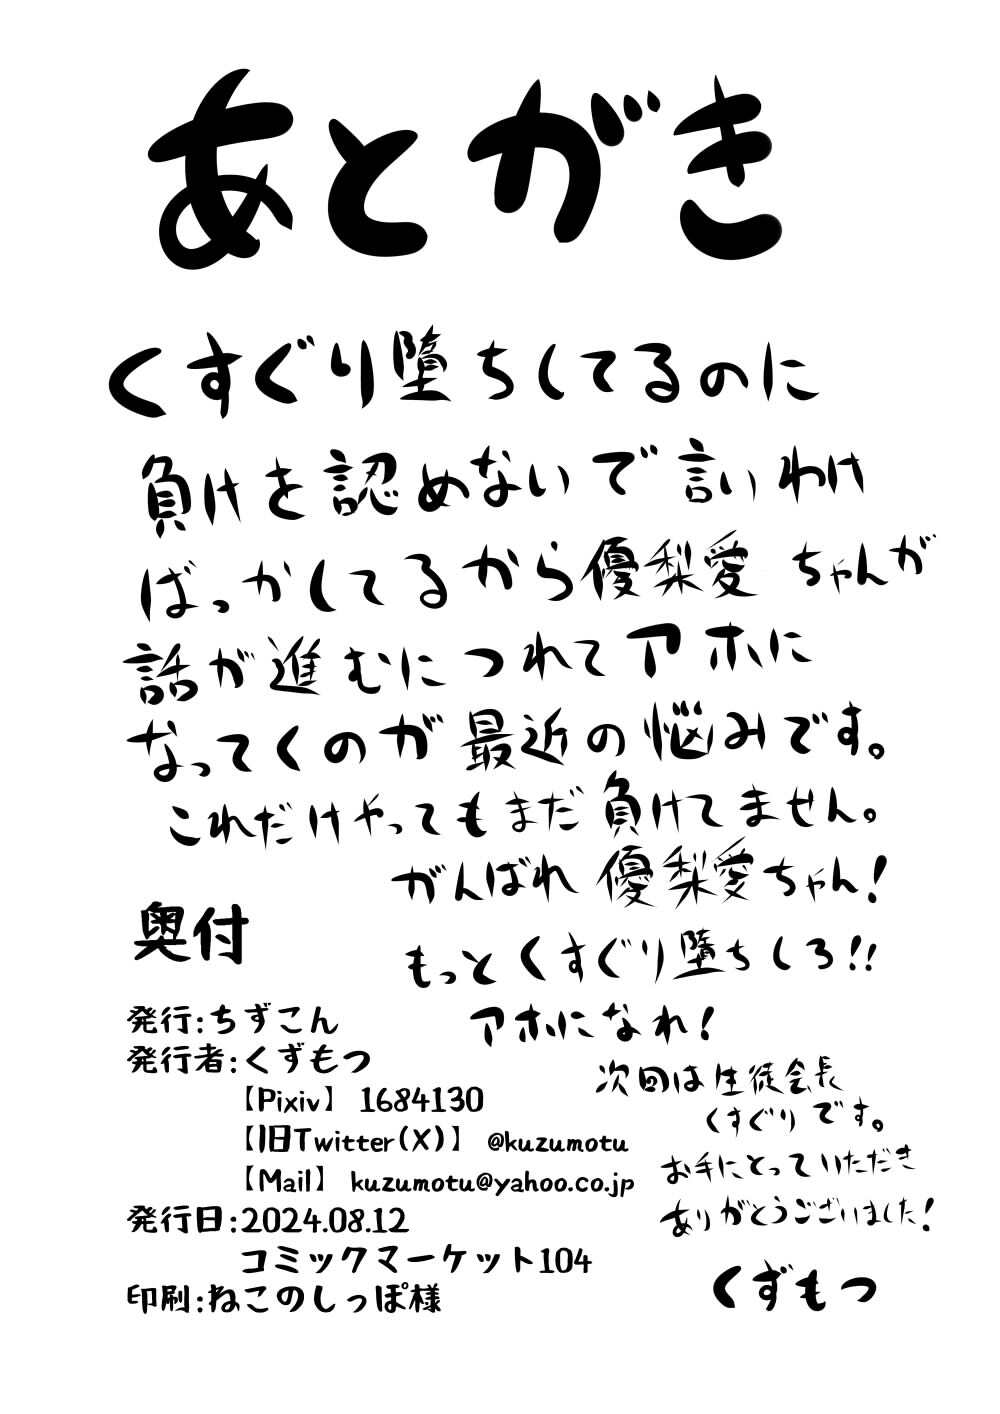 あとがき
くすぐり堕ちしてるのに
負けを認めないで言いわけ
ばっかしてるから優梨愛ちゃんが
話が進むにつれてアホに
なってくのが最近の悩みです。
これだけやってもまだ負けてません。
がんばれ優梨愛ちゃん!
もっとくすぐり堕ちしろ!!
アホになれ!
次回は生徒会長
くすぐりです。
お手にとっていただき
ありがとうございました!
くずもつ
奥付
発行:ちずこん
発行者:くずもつ
【Pixiv】 1684130
【旧Twitter(X)】 @kuzumotu
【Mail】 kuzumotu@yahoo.co.jp
発行日:2024.08.12
コミックマーケット104
印刷:ねこのしっぽ様